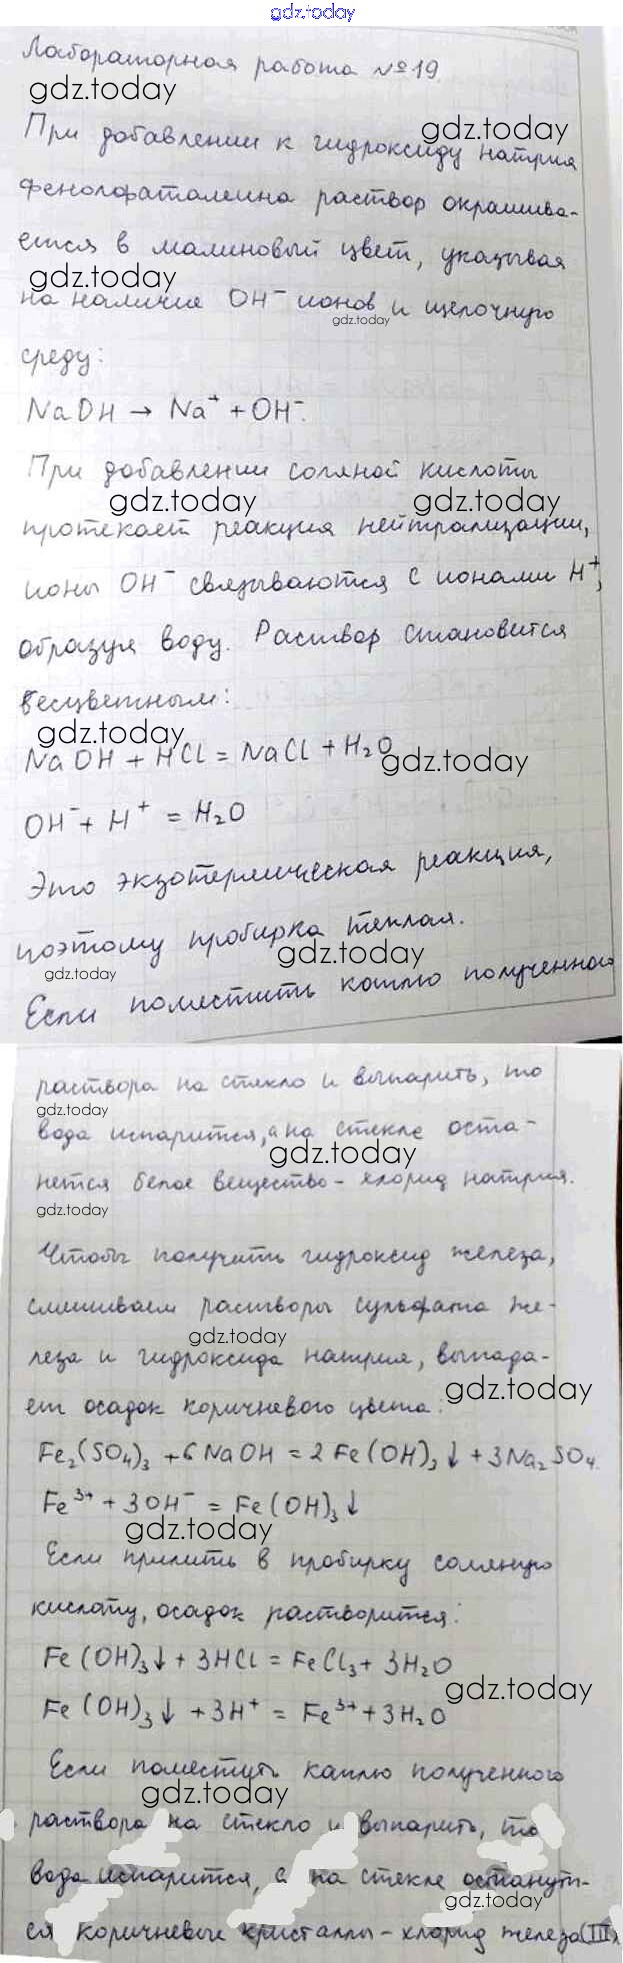 gdz.today
Лабораторная работа №19.
gdz.today
При добавлении к гидроксиду натрия
gdz.today
фенолфталеина раствор окрашива-
ется в малиновый цвет, указывая
gdz.today
на наличие OH⁻ ионов и щелочную
gdz.today
среду:
NaOH → Na⁺ + OH⁻.
При добавлении соляной кислоты
gdz.today gdz.today
протекает реакция нейтрализации,
ионы OH⁻ связываются с ионами H⁺,
образуя воду. Раствор становится
бесцветным:
gdz.today
NaOH + HCl = NaCl + H₂O
gdz.today
OH⁻ + H⁺ = H₂O
Это экзотермическая реакция,
поэтому пробирка теплая.
gdz.today
gdz.today
Если поместить каплю полученного
раствора на стекло и выпарить, то
gdz.today
вода испарится, а на стекле оста-
gdz.today
нется белое вещество - хлорид натрия.
gdz.today
Чтобы получить гидроксид железа,
смешиваем растворы сульфата же-
gdz.today
леза и гидроксида натрия, выпада-
gdz.today
ет осадок коричневого цвета:
Fe₂(SO₄)₃ + 6NaOH = 2Fe(OH)₃↓ + 3Na₂SO₄.
Fe³⁺ + 3OH⁻ = Fe(OH)₃↓
gdz.today
Если прилить в пробирку соляную
кислоту, осадок растворится:
Fe(OH)₃↓ + 3HCl = FeCl₃ + 3H₂O
gdz.today
Fe(OH)₃↓ + 3H⁺ = Fe³⁺ + 3H₂O
Если поместить каплю полученного
gdz.today
раствора на стекло и выпарить, то
вода испарится, а на стекле останут-
gdz.today
ся коричневые кристаллы - хлорид железа (III).